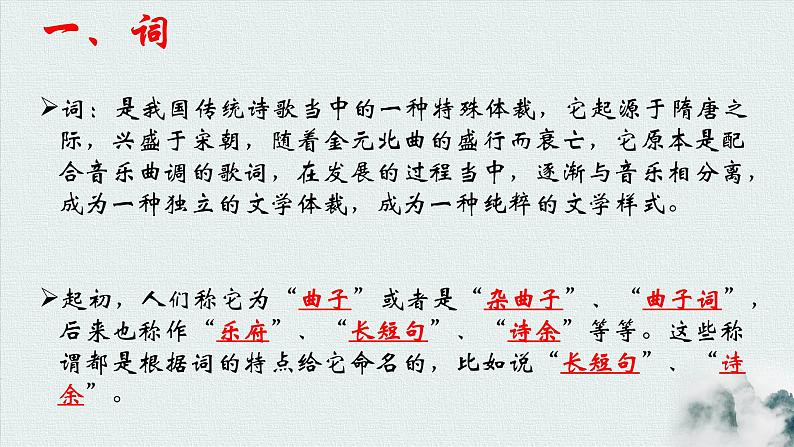 一、词
➢词：是我国传统诗歌当中的一种特殊体裁，它起源于隋唐之
际，兴盛于宋朝，随着金元北曲的盛行而衰亡，它原本是配
合音乐曲调的歌词，在发展的过程当中，逐渐与音乐相分离，
成为一种独立的文学体裁，成为一种纯粹的文学样式。
➢起初，人们称它为“曲子”或者是“杂曲子”、“曲子词”，
后来也称作“乐府”、“长短句”、“诗余”等等。这些称
谓都是根据词的特点给它命名的，比如说“长短句”、“诗
余”。